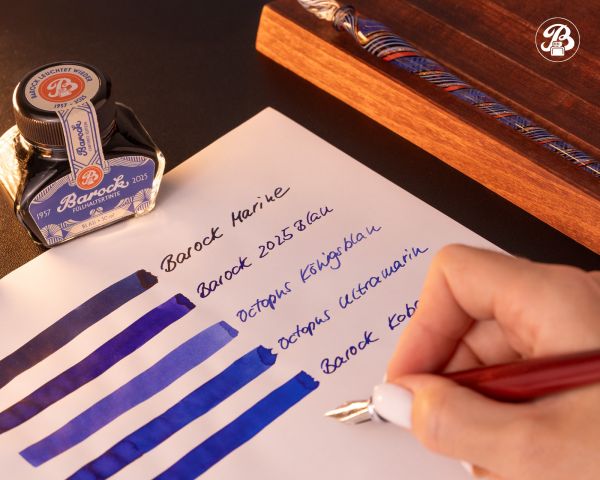 BAROCK LEUCHTET WIEDER
1957
Barock
1957
Barock
2025
FÜLLHALTERTINTE
Barock Marine
Barock 2025 Blau
Octopus Königsblau
Octopus Ultramarin
Barock Kob
B